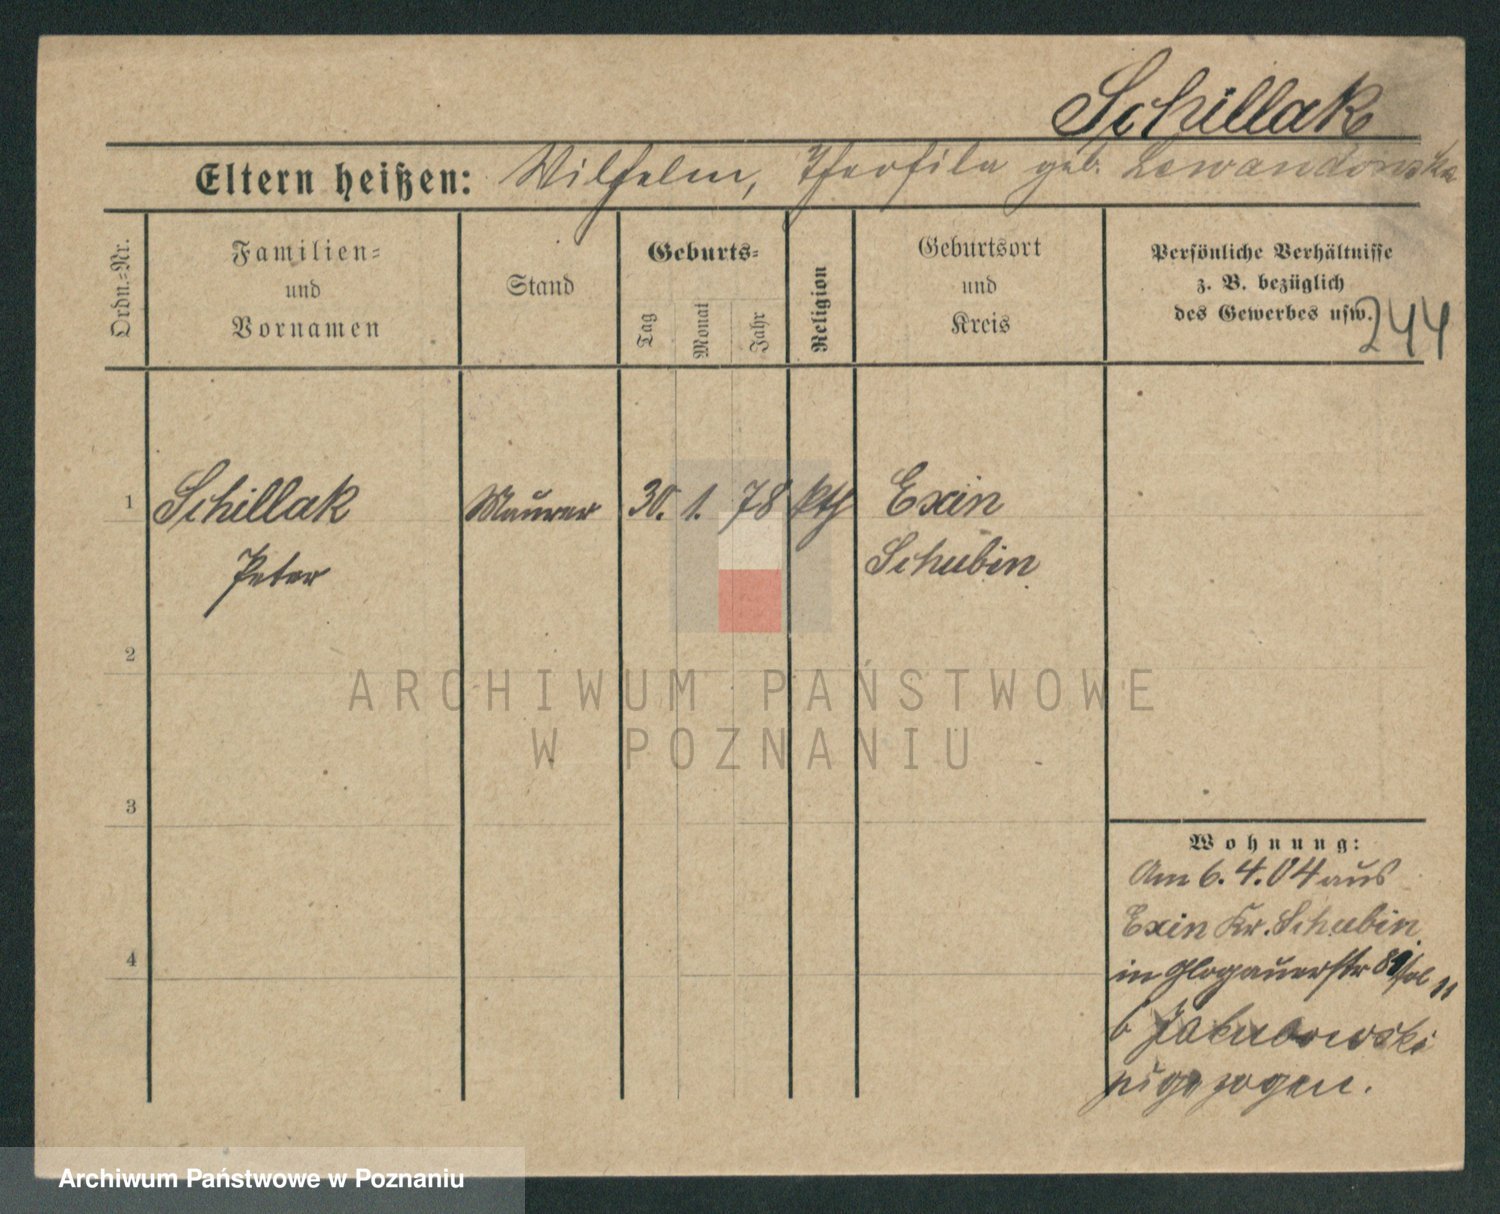 Schillak
Eltern heißen: Wilhelm, Theofila geb. Lewandowska
Ordn.-Nr.
Familien-
und
Vornamen
Stand
Geburts-
Tag
Monat
Jahr
Religion
Geburtsort
und
Kreis
Persönliche Verhältnisse
z. B. bezüglich
des Gewerbes usw.
244
1 Schillak Maurer 30. 1. 78 kth Exin
Peter Schubin
2
3
4
ARCHIWUM PAŃSTWOWE
W POZNANIU
Wohnung:
Am 6.4.04 aus
Exin Kr. Schubin
in Glogauerstr
b Jakubowski
zugezogen.
Archiwum Państwowe w Poznaniu